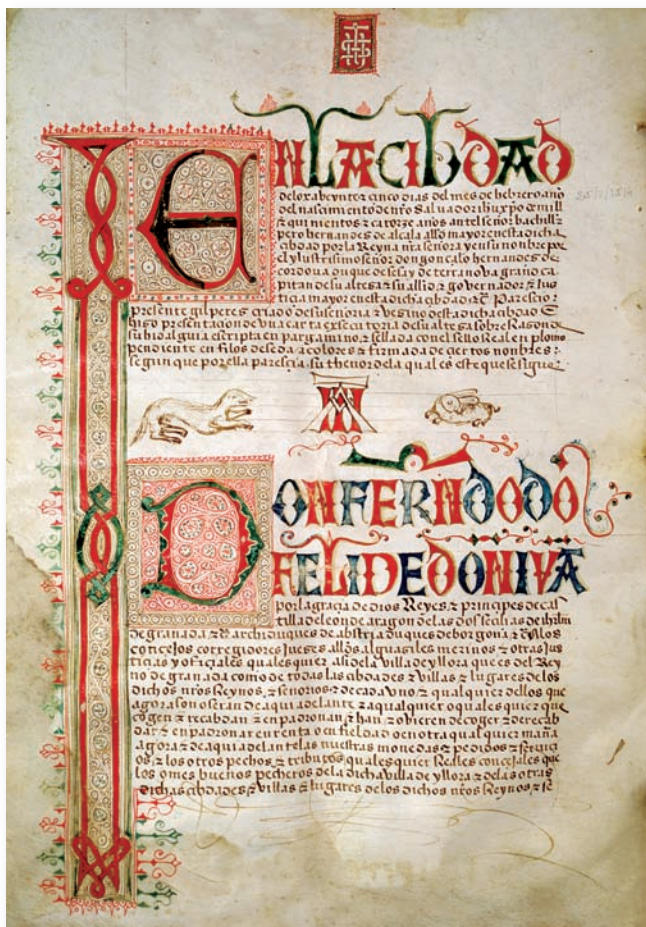 EN LA CIBDAD
de loxa beynte & çinco dias del mes de hebrero año
del nasçimiento de nr̃o Salvador ihux̃p̃o de mill
& quinientos & catorze años antel señor bachiller
pero hernandes de alcala allde mayor enesta dicha
cibdad por la Reyna nr̃a señora y en su nonbre por
el yllustrisimo señor don gonçalo hernandes de
cordova duque de sesa y de terranova gran ca
pitan de su altesa & su allde & governador & Jus
ticia mayor enesta dicha cibdad &c̃ Paresçio
presente gil peres criado de su señoria & vezino desta dicha cibdad E
hizo presentaçion de una carta executoria de su altesa sobre Rason de
su hidalguia escripta en pargamino & sellada con el sello Real en plomo
pendiente en filos de seda a colores & firmada de çiertos nonbres
segun que por ella paresçia su thenor de la qual es este que se sigue
DON FERNDO DO
FELIPE DONIUA
por la graçia de dios Reyes & prinçipes de cas
tilla de leon de aragon de las dos seçilias de ihrlm̃
de granada &c̃ archiduques de abstria duques de borgoña &c̃ A los
conçejos corregidores Jueses alldes alguasiles merinos & otras Jus
ticias y ofiçiales qualesquier asi de la villa de yllora que es del Rey
no de granada como de todas las cibdades & villas & lugares de los
dichos nr̃os Reynos & señorios & de cada vno & qualquier dellos que
agora son o seran de aqui adelante & a qualquier o qualesquier que
cogen & recabdan & enpadronan & han & obieren de coger & de recab
dar & enpadronar en renta o en fieldad o en otra qualquier maña
agora & de aqui adelante las nuestras monedas & pedidos & serviçi
os & los otros pechos & tributos qualesquier Reales conçejales que
los omes buenos pecheros de la dicha villa de yllora & de las otras
dichas cibdades & villas & lugares de los dichos nr̃os Reynos & se